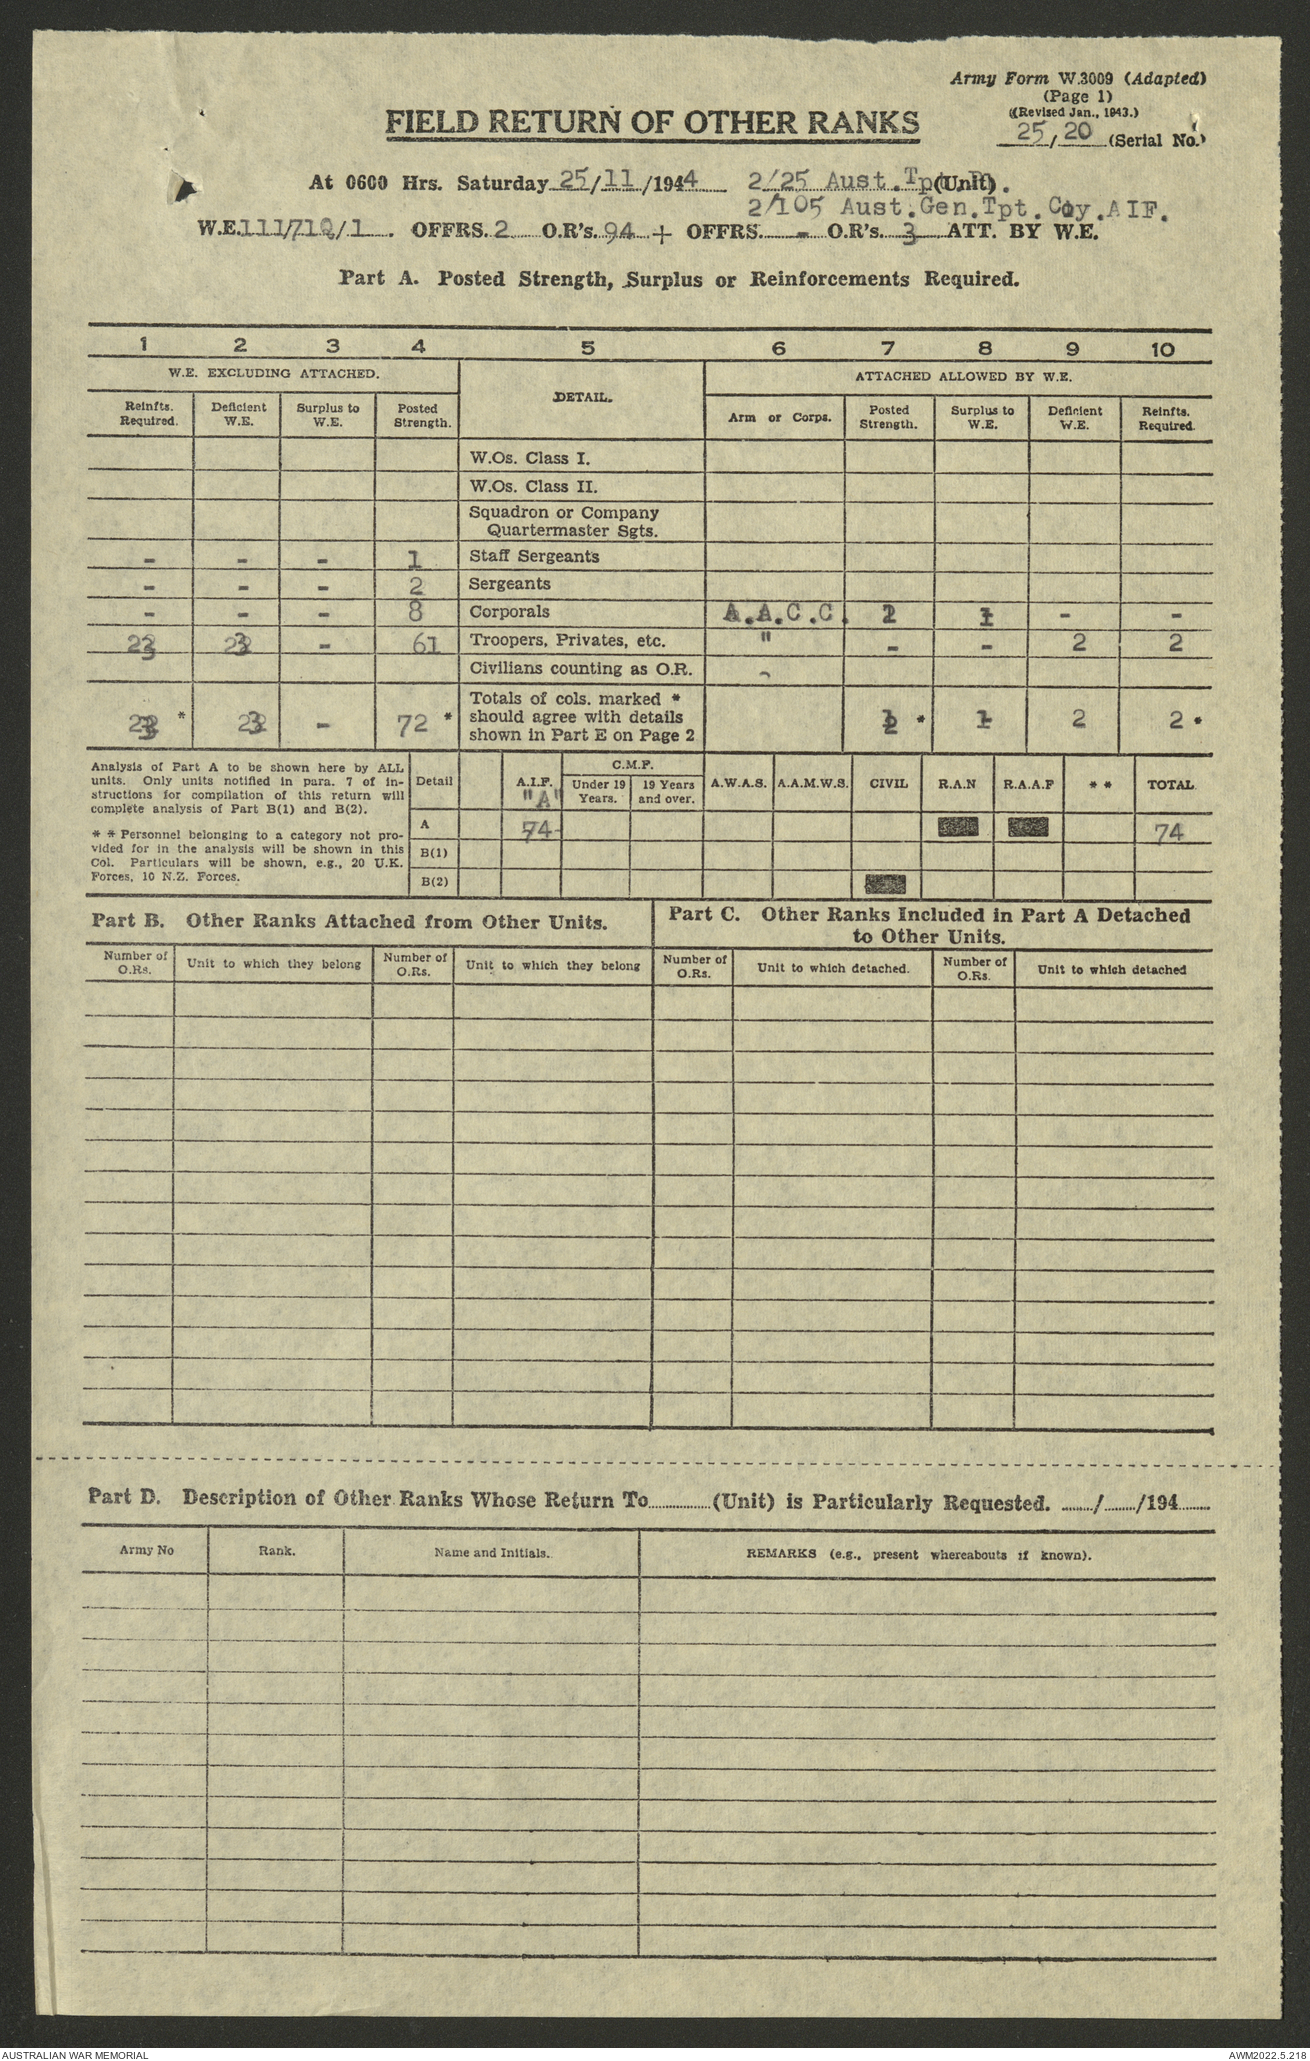 Army Form W.3009 (Adapted)
(Page 1)
((Revised Jan., 1943.)
25/20 (Serial No.)
FIELD RETURN OF OTHER RANKS
At 0600 Hrs. Saturday 25/11/1944 2/25 Aust. (Unit).
2/105 Aust.Gen.Tpt.Coy.AIF.
W.E. OFFRS. 2 O.R's. 94 + OFFRS. - O.R's. 3 ATT. BY W.E.
Part A. Posted Strength, Surplus or Reinforcements Required.
1 2 3 4 5 6 7 8 9 10
W.E. EXCLUDING ATTACHED. DETAIL. ATTACHED ALLOWED BY W.E.
Reinfts. Required. Deficient W.E. Surplus to W.E. Posted Strength. Arm or Corps. Posted Strength. Surplus to W.E. Deficient W.E. Reinfts. Required.
W.Os. Class I.
W.Os. Class II.
Squadron or Company
Quartermaster Sgts.
- - - 1 Staff Sergeants
- - - 2 Sergeants
- - - 8 Corporals A.A.C.C. 1 - -
- 61 Troopers, Privates, etc. " - - 2 2
Civilians counting as O.R. -
Totals of cols. marked *
* - 72 * should agree with details * 2 2 *
shown in Part E on Page 2
Analysis of Part A to be shown here by ALL
units. Only units notified in para. 7 of in-
structions for compilation of this return will
complete analysis of Part B(1) and B(2).
* * Personnel belonging to a category not pro-
vided for in the analysis will be shown in this
Col. Particulars will be shown, e.g., 20 U.K.
Forces, 10 N.Z. Forces.
Detail A.I.F. "A" C.M.F. Under 19 Years. 19 Years and over. A.W.A.S. A.A.M.W.S. CIVIL R.A.N R.A.A.F * * TOTAL
A 74 74
B(1)
B(2)
Part B. Other Ranks Attached from Other Units.
Part C. Other Ranks Included in Part A Detached
to Other Units.
Number of O.Rs. Unit to which they belong Number of O.Rs. Unit to which they belong Number of O.Rs. Unit to which detached. Number of O.Rs. Unit to which detached
Part D. Description of Other Ranks Whose Return To..........(Unit) is Particularly Requested. ....../....../194......
Army No Rank. Name and Initials. REMARKS (e.g., present whereabouts if known).
AUSTRALIAN WAR MEMORIAL AWM2022.5.218